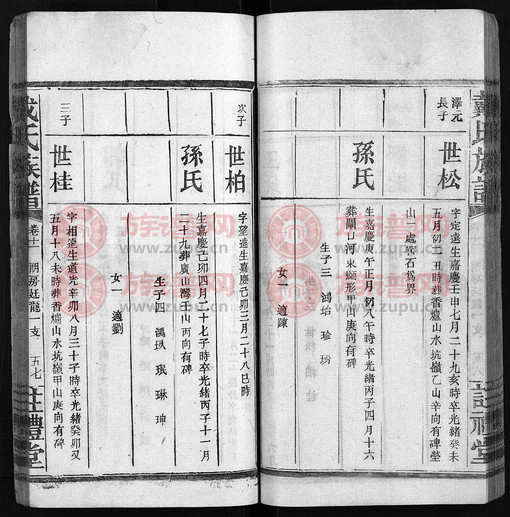 戴氏族譜
註禮堂
澤元
長子
世松
字定遠生嘉慶壬申七月二十九亥時卒光緒癸未
五月初二丑時葬香爐山水坑嶺乙山辛向有碑塋
山一處釘石為界
孫氏
生嘉慶庚午正月初八午時卒光緒丙子四月十六
葬闢山河東獅形甲山庚向有碑
生子三 鴻 珍
女一 適陳
次子
世柏
字望遠生嘉慶己卯三月二十八巳時
孫氏
生嘉慶己卯四月二十七子時卒光緒丙子十一月
二十九葬廣山灣壬山丙向有碑
生子四 鴻 珉 琳 珅
女一 適劉
三子
世桂
字相遠生道光辛卯八月三十子時卒光緒癸卯又
五月十八未時葬香爐山水坑嶺甲山庚向有碑
戴氏族譜
卷十一 朋房廷龍一支 五七
註禮堂
族譜网
www.zupu.cn